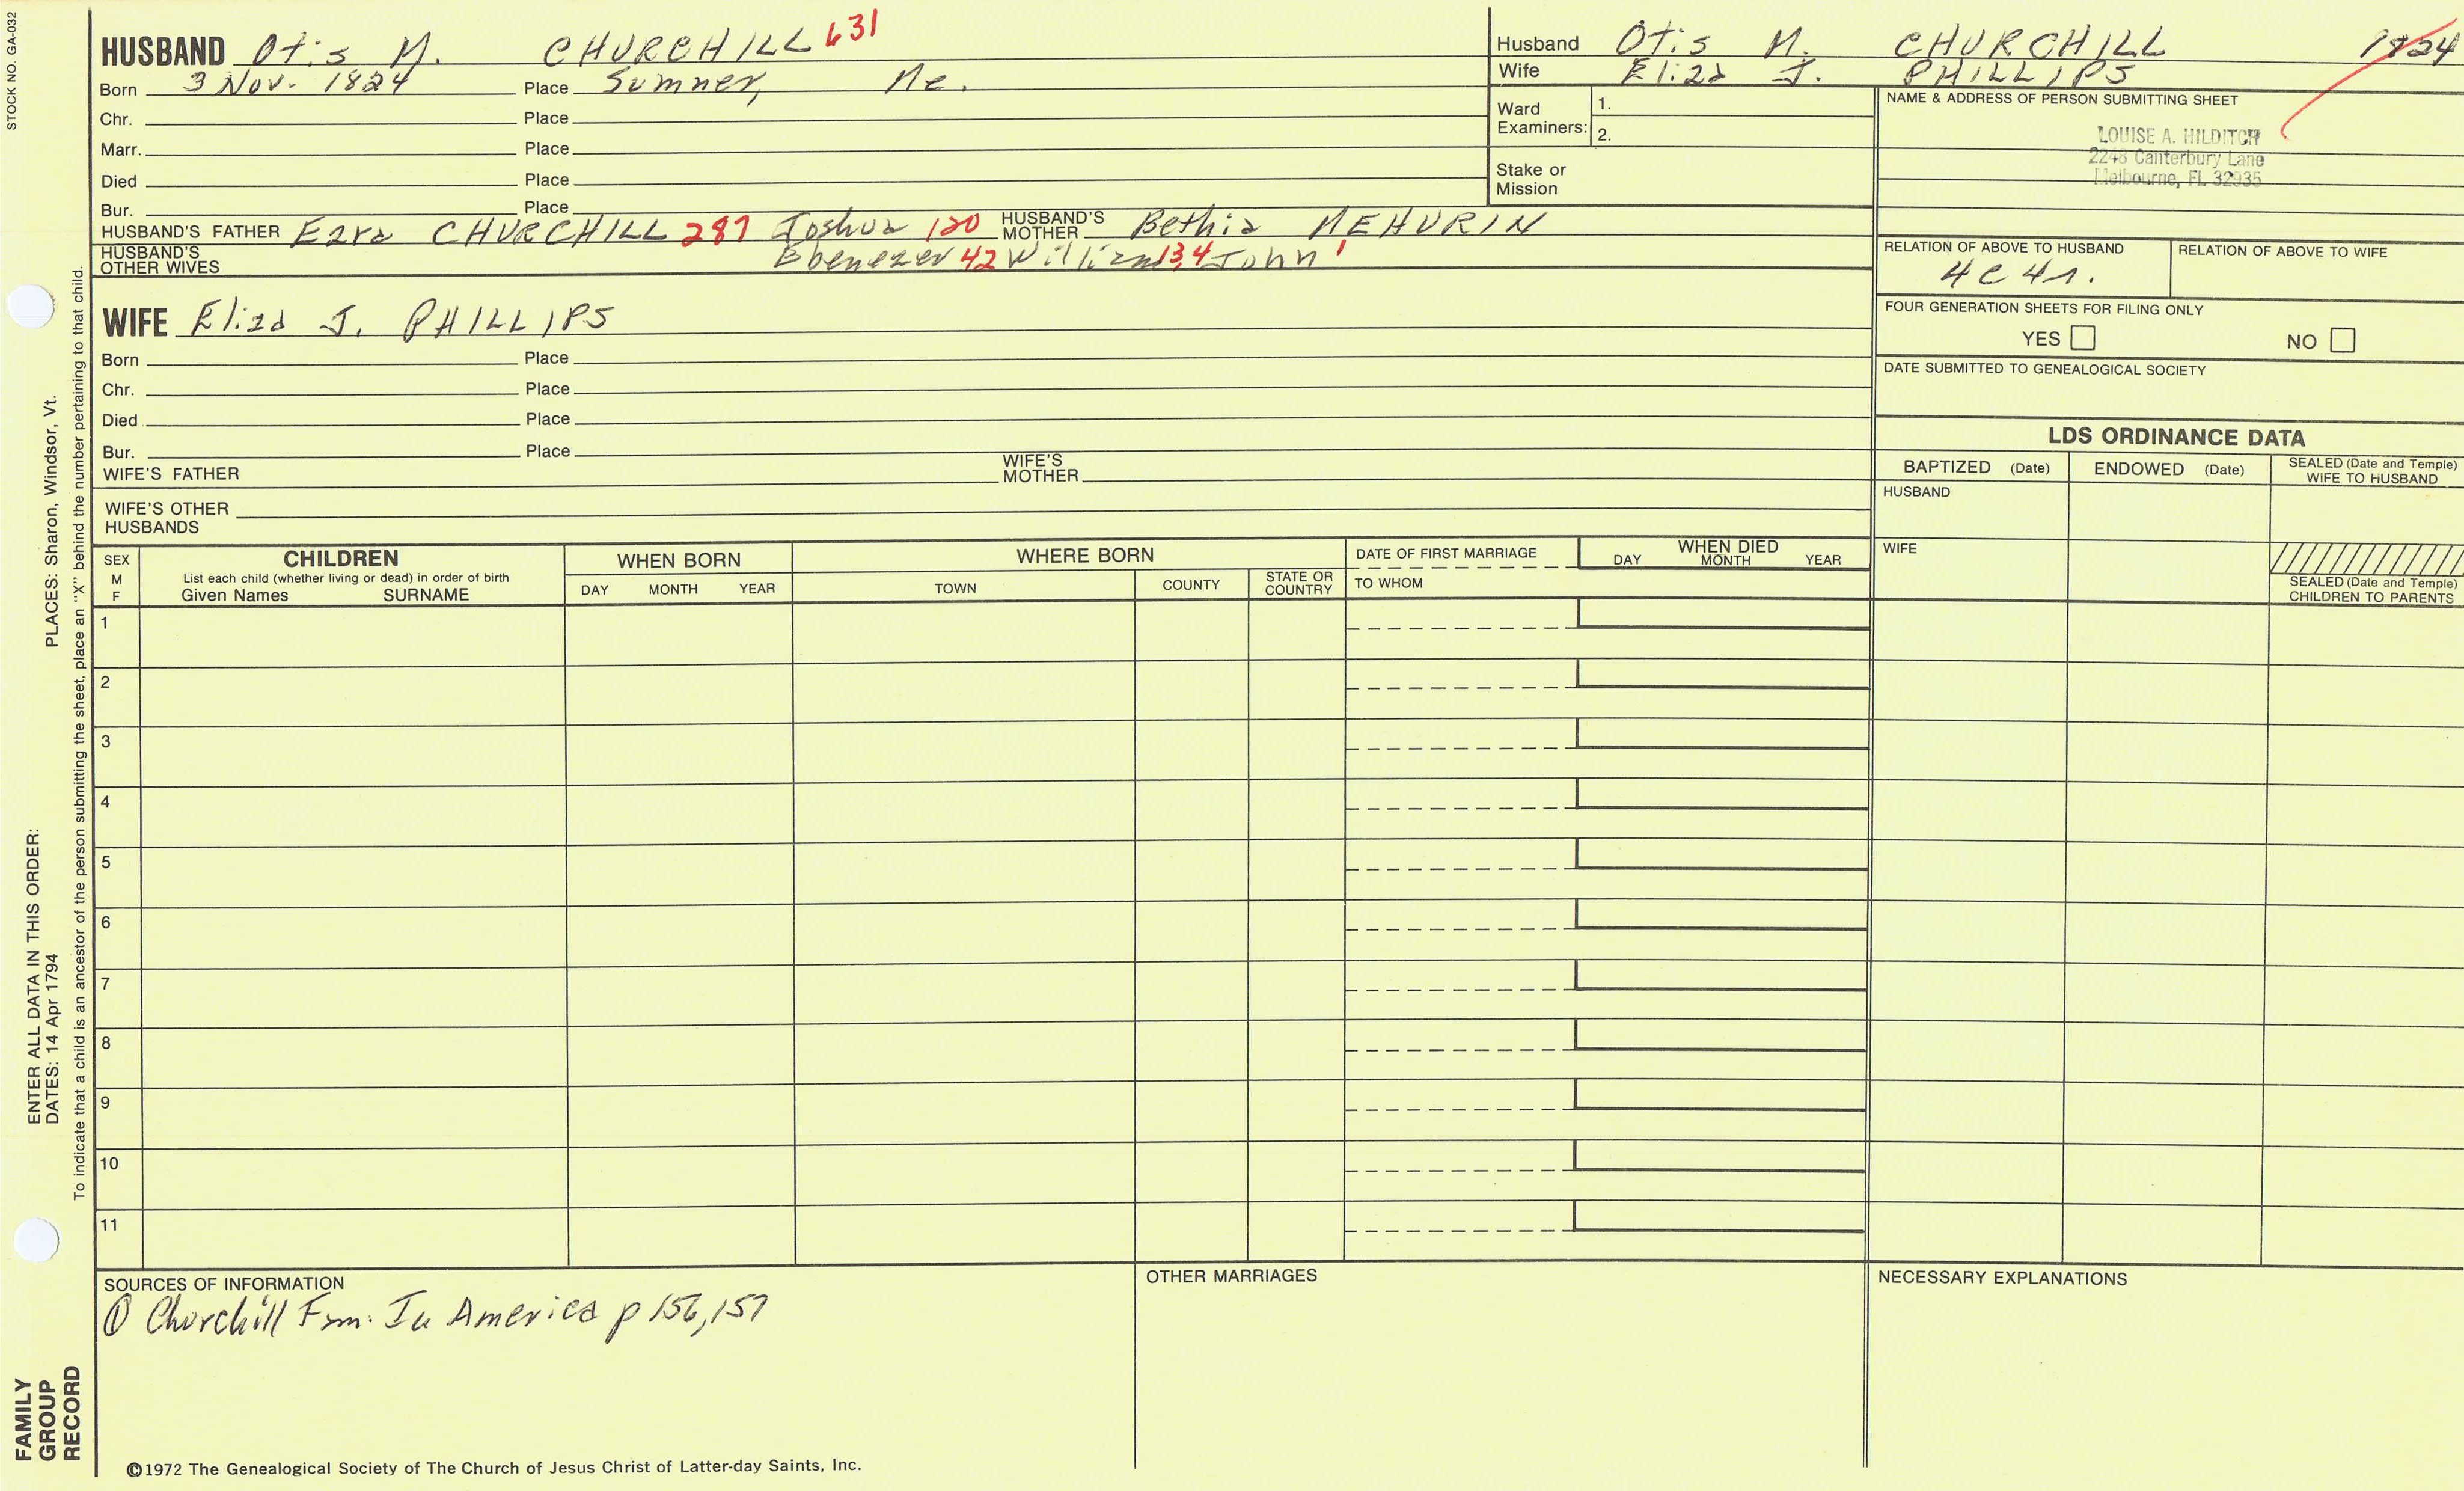 STOCK NO. GA-032
HUSBAND Otis M. CHURCHILL 631
Born 3 Nov. 1824 Place Sumner, Me.
Chr. Place
Marr. Place
Died Place
Bur. Place
HUSBAND'S FATHER Ezra CHURCHILL 287 Joshua 120 HUSBAND'S MOTHER Bethia MEHURIN
HUSBAND'S OTHER WIVES Ebenezer 42 William 13,4 John 1
WIFE Eliza J. PHILLIPS
Born Place
Chr. Place
Died Place
Bur. Place
WIFE'S FATHER WIFE'S MOTHER
WIFE'S OTHER HUSBANDS
Husband Otis M. CHURCHILL 1824
Wife Eliza J. PHILLIPS
Ward Examiners: 1.
2.
Stake or Mission
NAME & ADDRESS OF PERSON SUBMITTING SHEET
LOUISE A. HILDITCH
2248 Canterbury Lane
Melbourne, FL 32935
RELATION OF ABOVE TO HUSBAND RELATION OF ABOVE TO WIFE
4C4r.
FOUR GENERATION SHEETS FOR FILING ONLY
YES NO
DATE SUBMITTED TO GENEALOGICAL SOCIETY
LDS ORDINANCE DATA
BAPTIZED (Date) ENDOWED (Date) SEALED (Date and Temple) WIFE TO HUSBAND
HUSBAND
WIFE
SEALED (Date and Temple) CHILDREN TO PARENTS
SEX M F
CHILDREN
List each child (whether living or dead) in order of birth
Given Names SURNAME
WHEN BORN
DAY MONTH YEAR
WHERE BORN
TOWN COUNTY STATE OR COUNTRY
DATE OF FIRST MARRIAGE
TO WHOM
WHEN DIED
DAY MONTH YEAR
1
2
3
4
5
6
7
8
9
10
11
SOURCES OF INFORMATION
① Churchill Fam. In America p 156,157
OTHER MARRIAGES
NECESSARY EXPLANATIONS
©1972 The Genealogical Society of The Church of Jesus Christ of Latter-day Saints, Inc.
FAMILY GROUP RECORD
ENTER ALL DATA IN THIS ORDER:
DATES: 14 Apr 1794 PLACES: Sharon, Windsor, Vt.
To indicate that a child is an ancestor of the person submitting the sheet, place an "X" behind the number pertaining to that child.